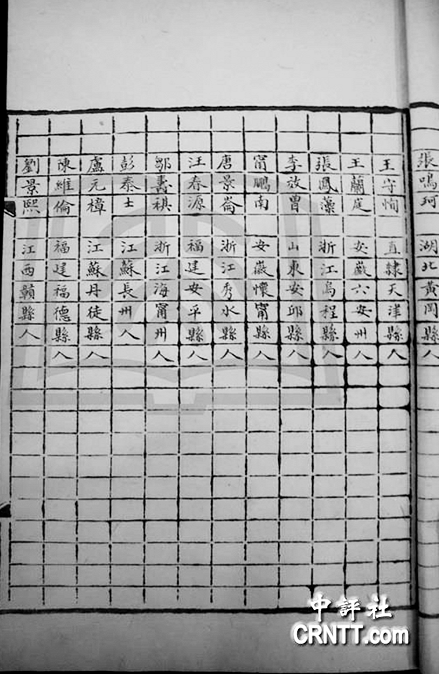 張鳴珂 湖北黃岡縣人
王守恂 直隸天津縣人
王蘭庭 安徽六安州人
張鳳藻 浙江烏程縣人
李放曾 山東安邱縣人
甯鵬南 安徽懷甯縣人
唐景崙 浙江秀水縣人
汪春源 福建安平縣人
鄒壽祺 浙江海甯州人
彭泰士 江蘇長州人
盧元樟 江蘇丹徒縣人
陳維倫 福建福德縣人
劉景熙 江西贛縣人
中評社
CRNTT.com